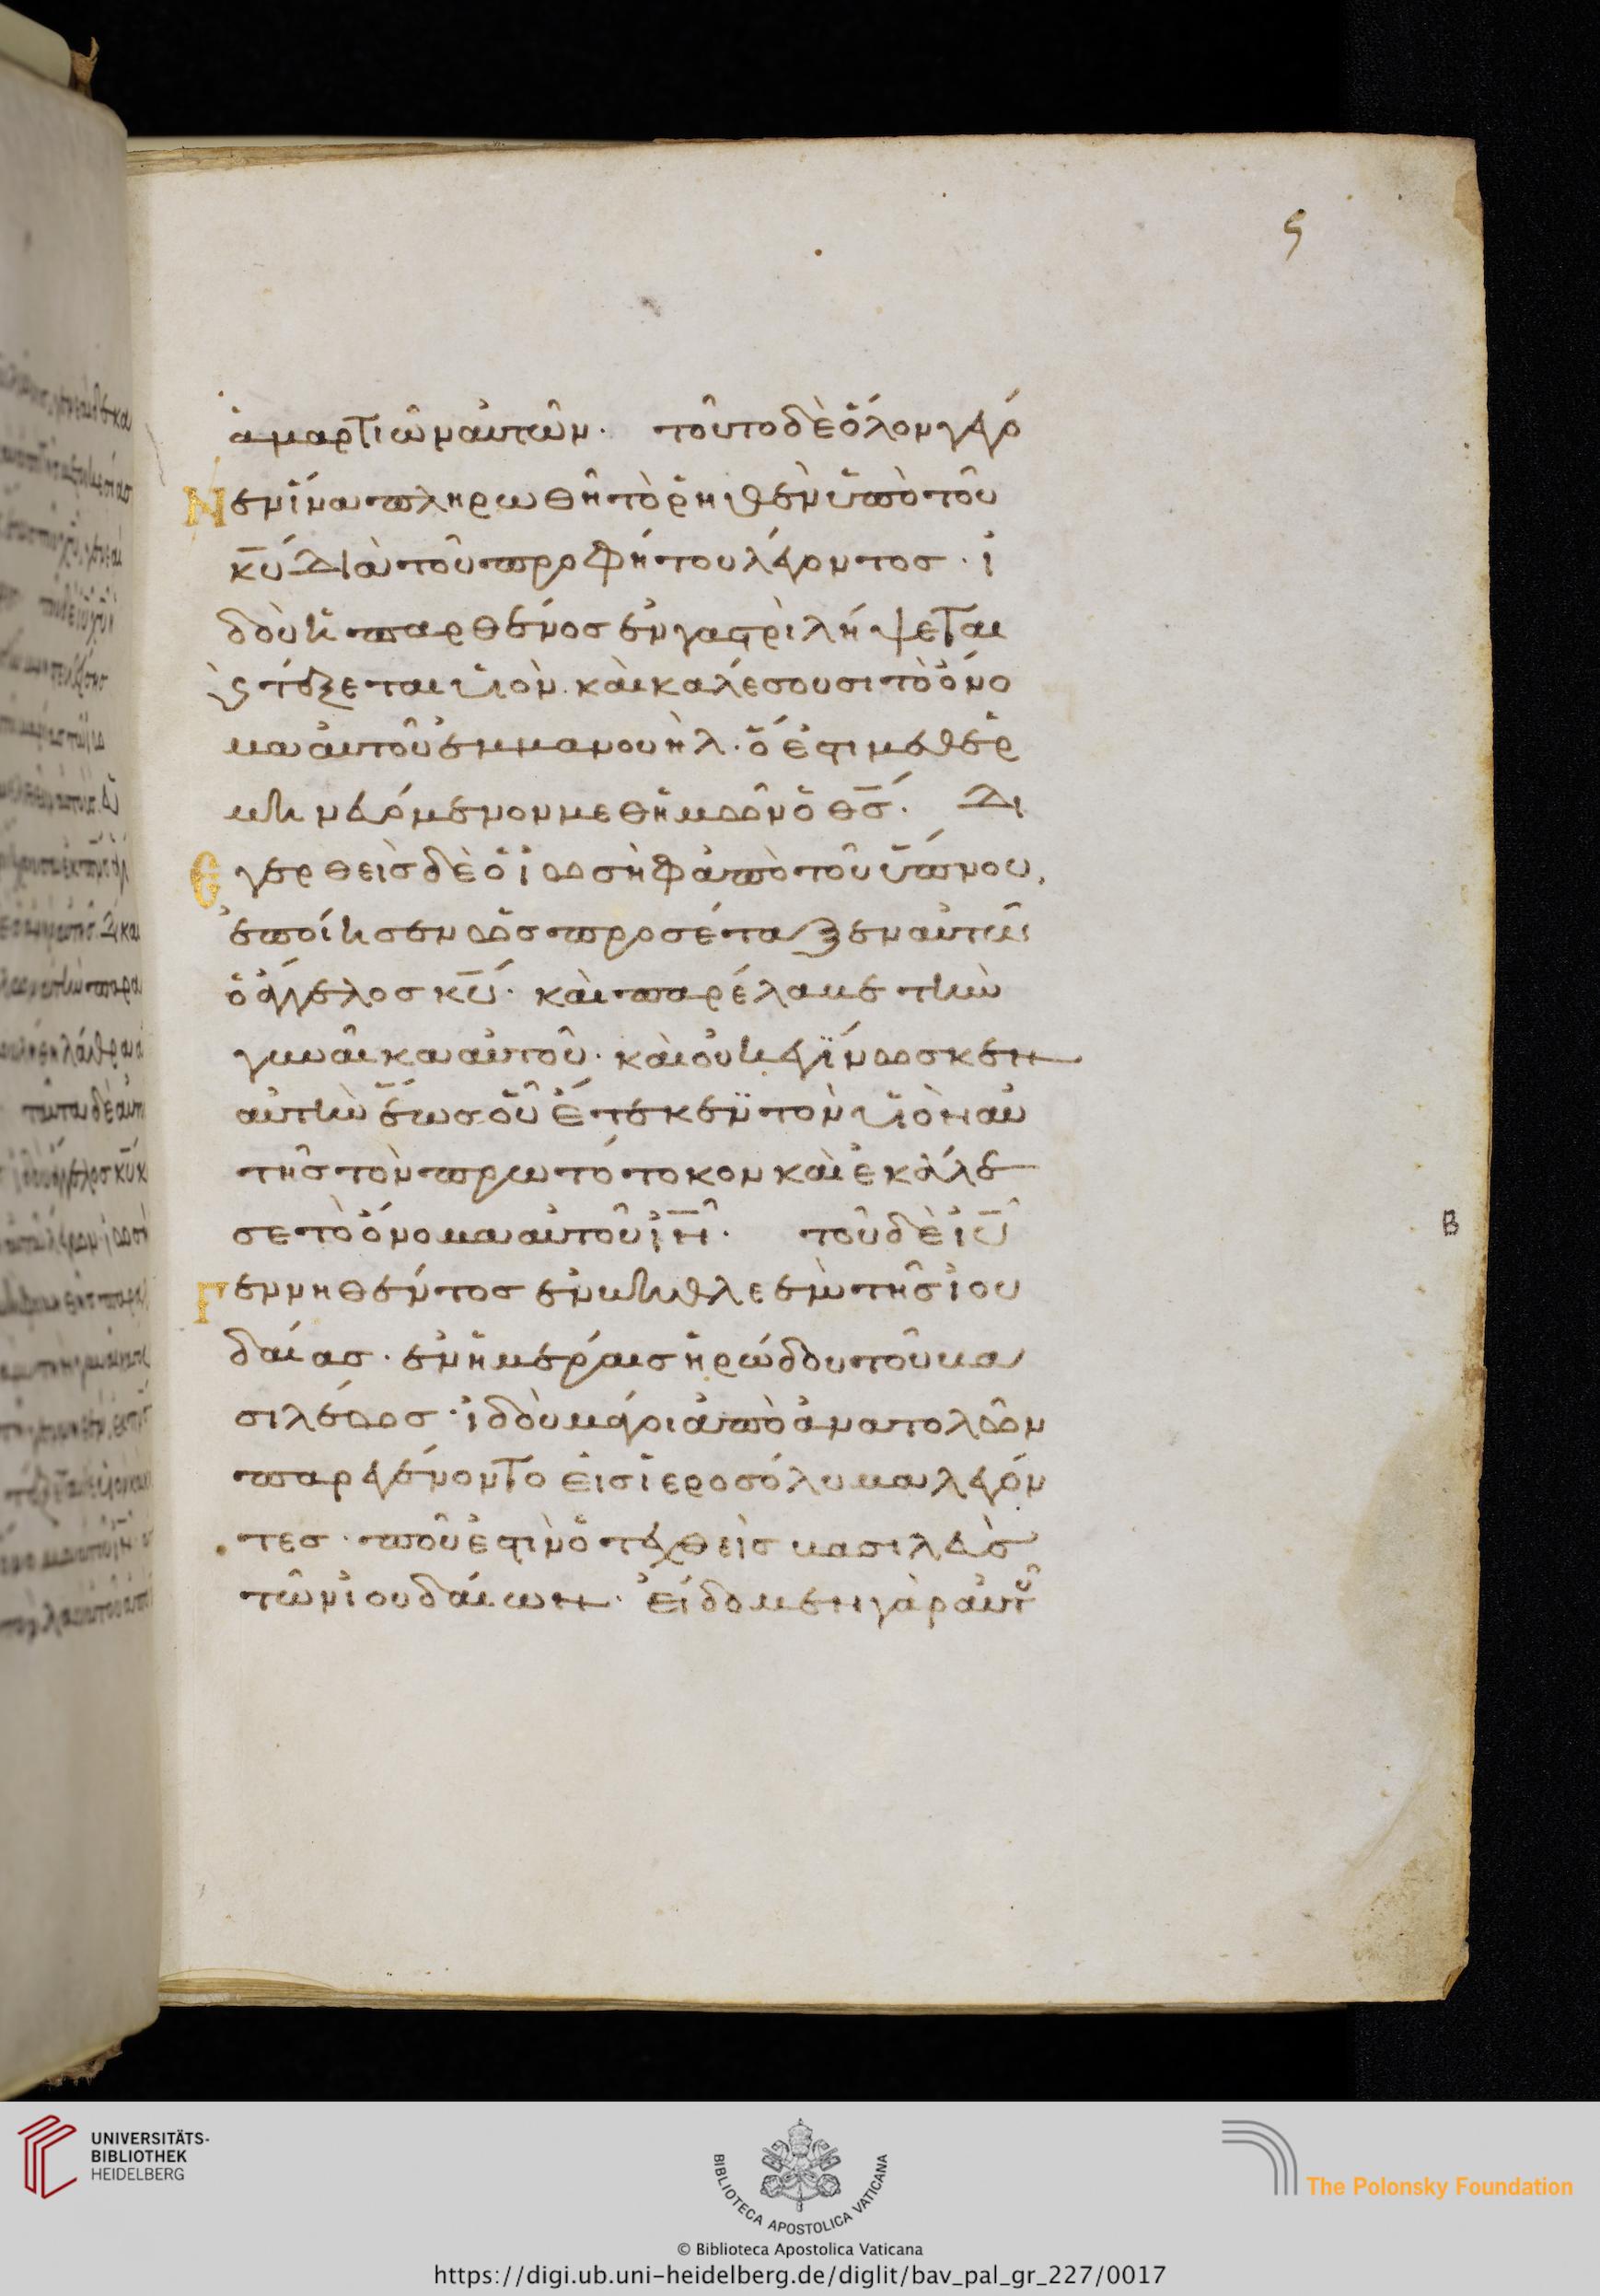 5
ἁμαρτιῶν αὐτῶν· τοῦτο δὲ ὅλον γέγο
Νεν ἵνα πληρωθῆ τὸ ῥηθὲν ὑπὸ τοῦ
κ̅υ̅ διὰ τοῦ προφήτου λέγοντος· ἰ
δοὺ ἡ παρθένος ἐν γαστρὶ λήψεται
ϗ τέξεται υἱὸν· καὶ καλέσουσι τὸ ὄνο
μα αὐτοῦ ἐμμανουὴλ· ὅ ἐστι μεθερ
μηνευόμενον μεθ ἡμῶν ὁ θ̅ς̅·
Εγερθεὶς δὲ ὁ ἰωσὴφ ἀπὸ τοῦ ὕπνου,
ἐποίησεν ὡς προσέταξεν αὐτῶ
ὁ ἄγγελος κ̅υ̅· καὶ παρέλαβε τὴν
γυναῖκα αὐτοῦ· καὶ οὐκ ἐγίνωσκεν
αὐτὴν ἕως οὗ ἔτεκεν τὸν υἱὸν αὐ
τῆς τὸν πρωτότοκον καὶ ἐκάλε
σε τὸ ὄνομα αὐτοῦ ἰ̅ν̅· τοῦ δὲ ἰ̅υ̅
Γεννηθέντος ἐν βηθλεὲμ τῆς ἰου
δαίας· ἐν ἡμέραις ἡρώδου τοῦ βα
σιλέως· ἰδοὺ μάγοι ἀπὸ ἀνατολῶν
παρεγένοντο εἰς ἱεροσόλυμα λέγον
τες· ποῦ ἐστὶν ὁ τεχθεὶς βασιλεὺς
τῶν ἰουδαίων· εἴδομεν γὰρ αὐτοῦ
B
UNIVERSITÄTS-
BIBLIOTHEK
HEIDELBERG
BIBLIOTECA APOSTOLICA VATICANA
The Polonsky Foundation
© Biblioteca Apostolica Vaticana
https://digi.ub.uni-heidelberg.de/diglit/bav_pal_gr_227/0017